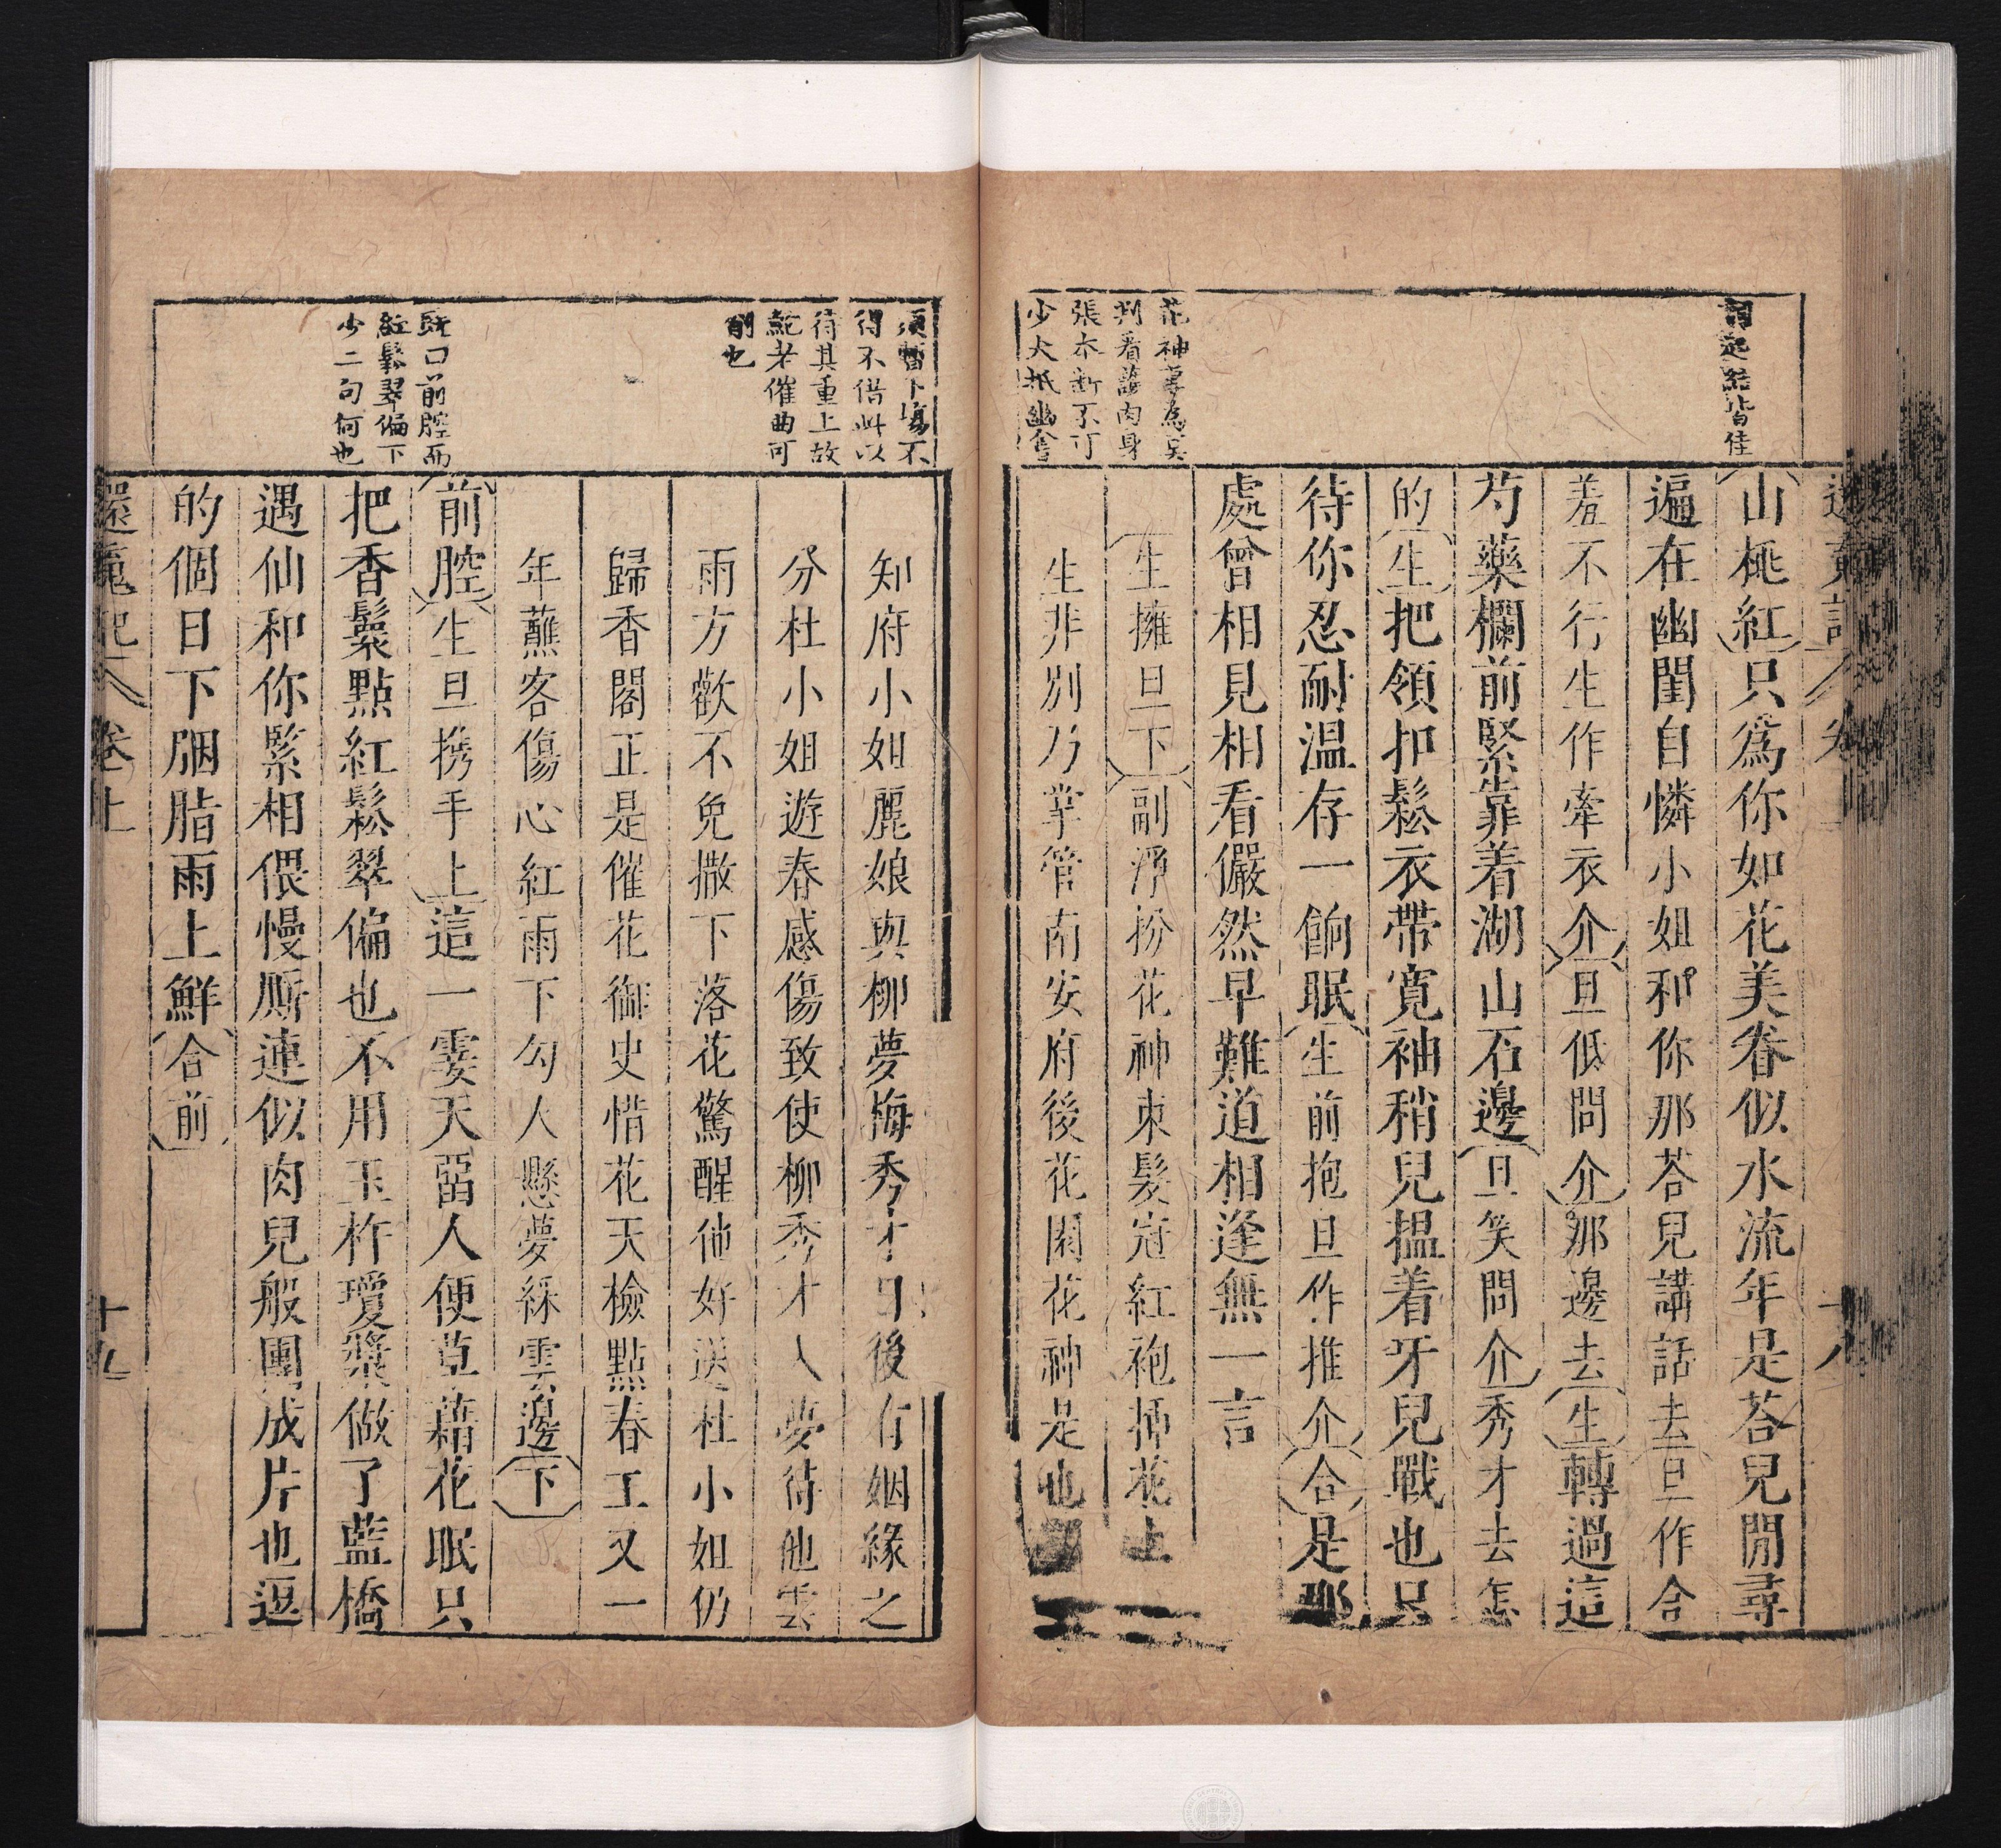 還魂記
卷上
十八
皆佳
山桃紅只爲你如花美眷似水流年是荅兒閒尋
遍在幽閨自憐小姐和你那荅兒講話去旦作含
羞不行生作牽衣介旦低問介那邊去生轉過這
芍藥欄前緊靠着湖山石邊旦笑問介秀才去怎
的生把領扣鬆衣帶寬袖稍兒揾着牙兒戰也只
待你忍耐温存一餉眠生前抱旦作推介合是那
處曾相見相看儼然早難道相逢無一言
花神
判看
張本斷不可
少大抵幽會
生擁旦下副淨扮花神束髮冠紅袍插花上
生非別乃掌管南安府後花園花神是也
須暫下塲不
得不借此以
待其重上故
催曲可
削也
知府小姐麗娘與柳夢梅秀才日後有姻緣之
分杜小姐遊春感傷致使柳秀才人夢待他雲
雨方歡不免撒下落花驚醒他好送杜小姐仍
歸香閣正是催花御史惜花天檢點春工又一
年蘸客傷心紅雨下勾人懸夢綵雲邊下
既曰前腔而
紅鬆翠偏下
少二句何也
前腔生旦携手上這一霎天留人便草藉花眠只
把香鬟點紅鬆翠偏也不用玉杵瓊漿做了藍橋
遇仙和你緊相偎慢厮連似肉兒般團成片也逗
的個日下胭脂雨上鮮合前
還魂記
卷上
十九